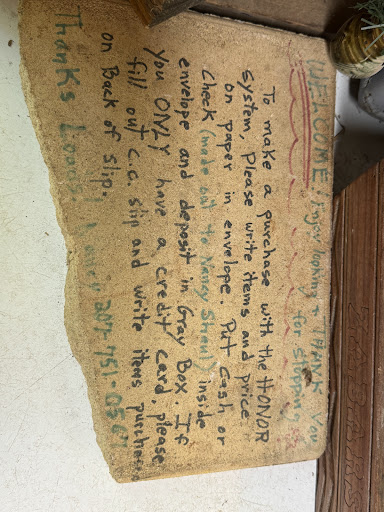 WELCOME! Enjoy looking + THANK You
for stopping
To make a purchase with the HONOR
system, Please write items and price
on paper in envelope. Put cash or
Check (made out to Nancy
inside
envelope and deposit in Gray Box. If
you ONLY have a credit card, please
fill out c.c. slip and write items purchased
on Back of slip.
Thanks Loads! 207-751-